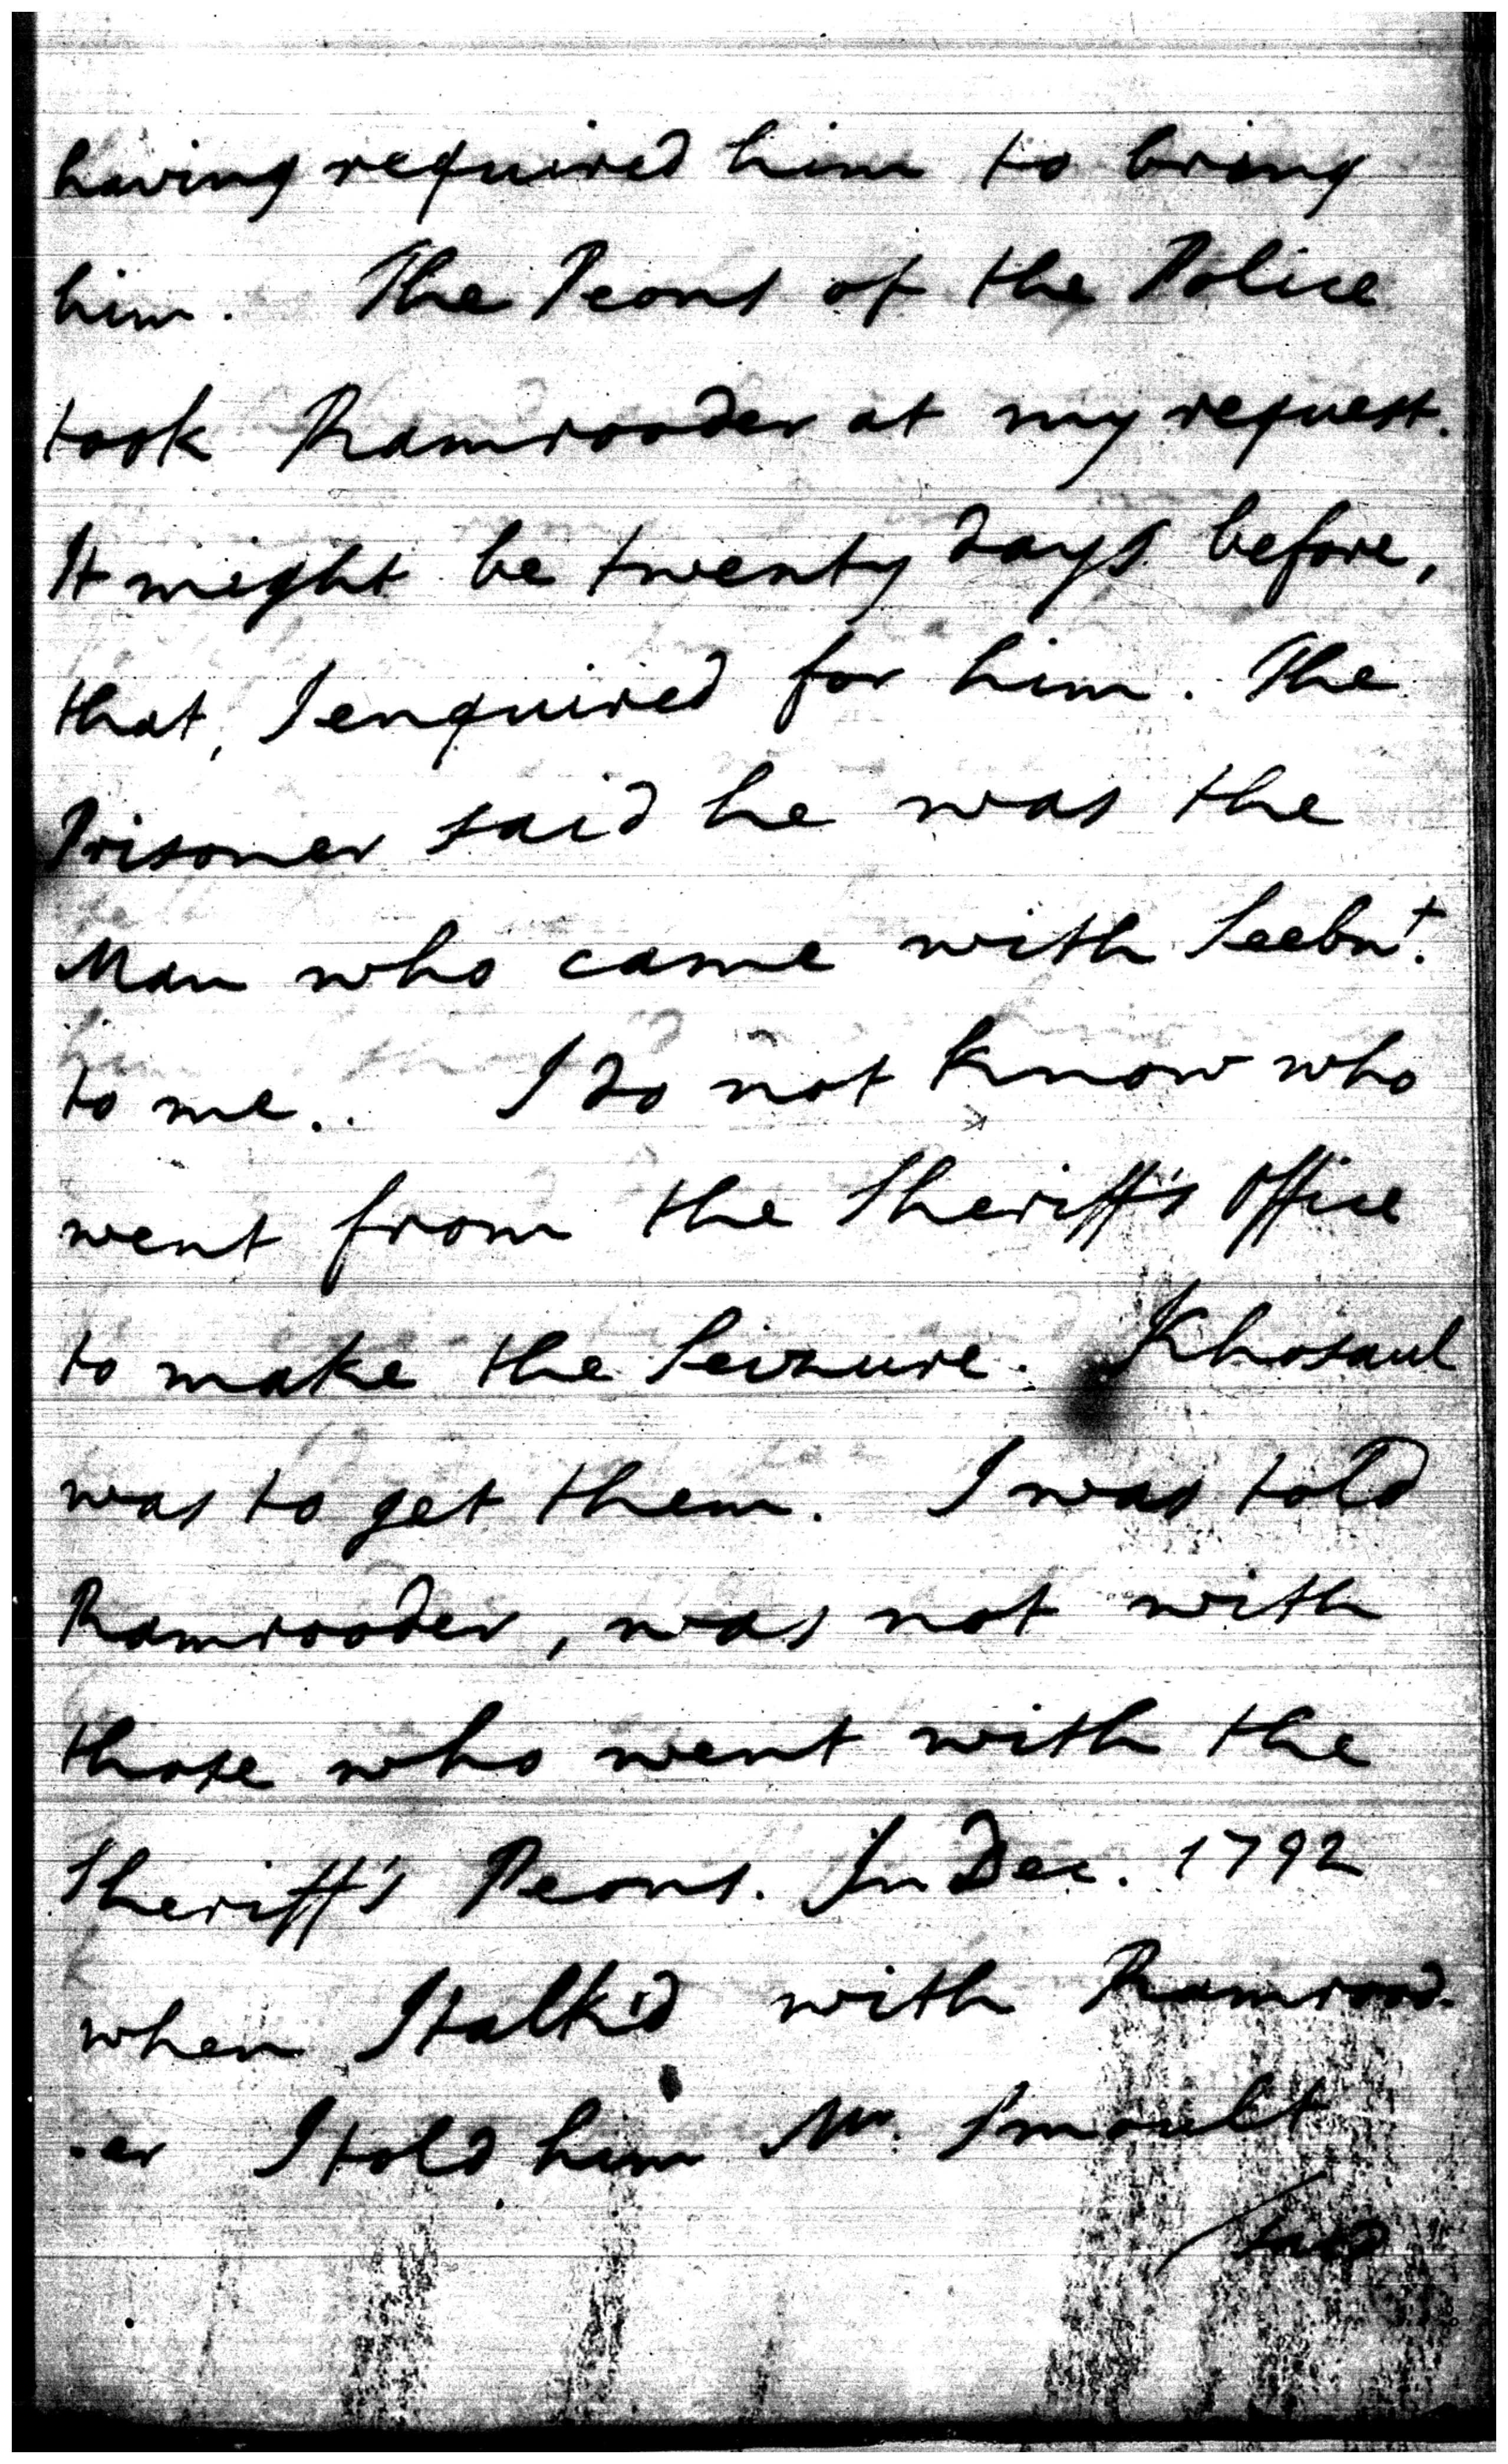 having required him to bring
him. The Peons of the Police
took Ramrooder at my request.
It might be twenty days before,
that, I enquired for him. The
Prisoner said he was the
Man who came with Seebnt.
to me.. I do not know who
went from the Sheriff's Office
to make the Seizure. Khosaul
was to get them. I was told
Ramrooder, was not with
those who went with the
Sheriff's Peons. In Dec. 1792
when I talk'd with Ramrood-
-er I told him Mr. Smoult
/said